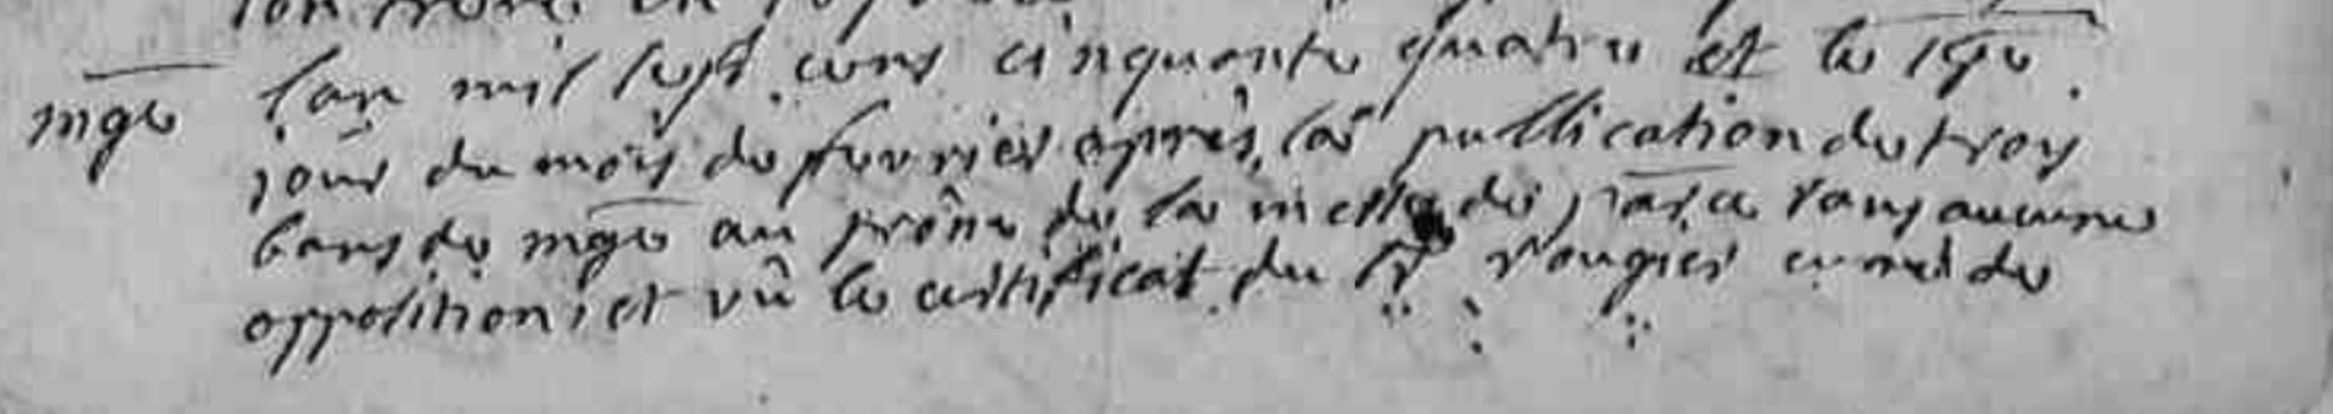 mge
l'an mil sept cens cinquante quatre et le 19e
jour du mois de fevrier apres la publication des troys
bans de mge au prône de la messe de parce sans aucune
opposition, et vû le certificat du Sr Rougier curé de